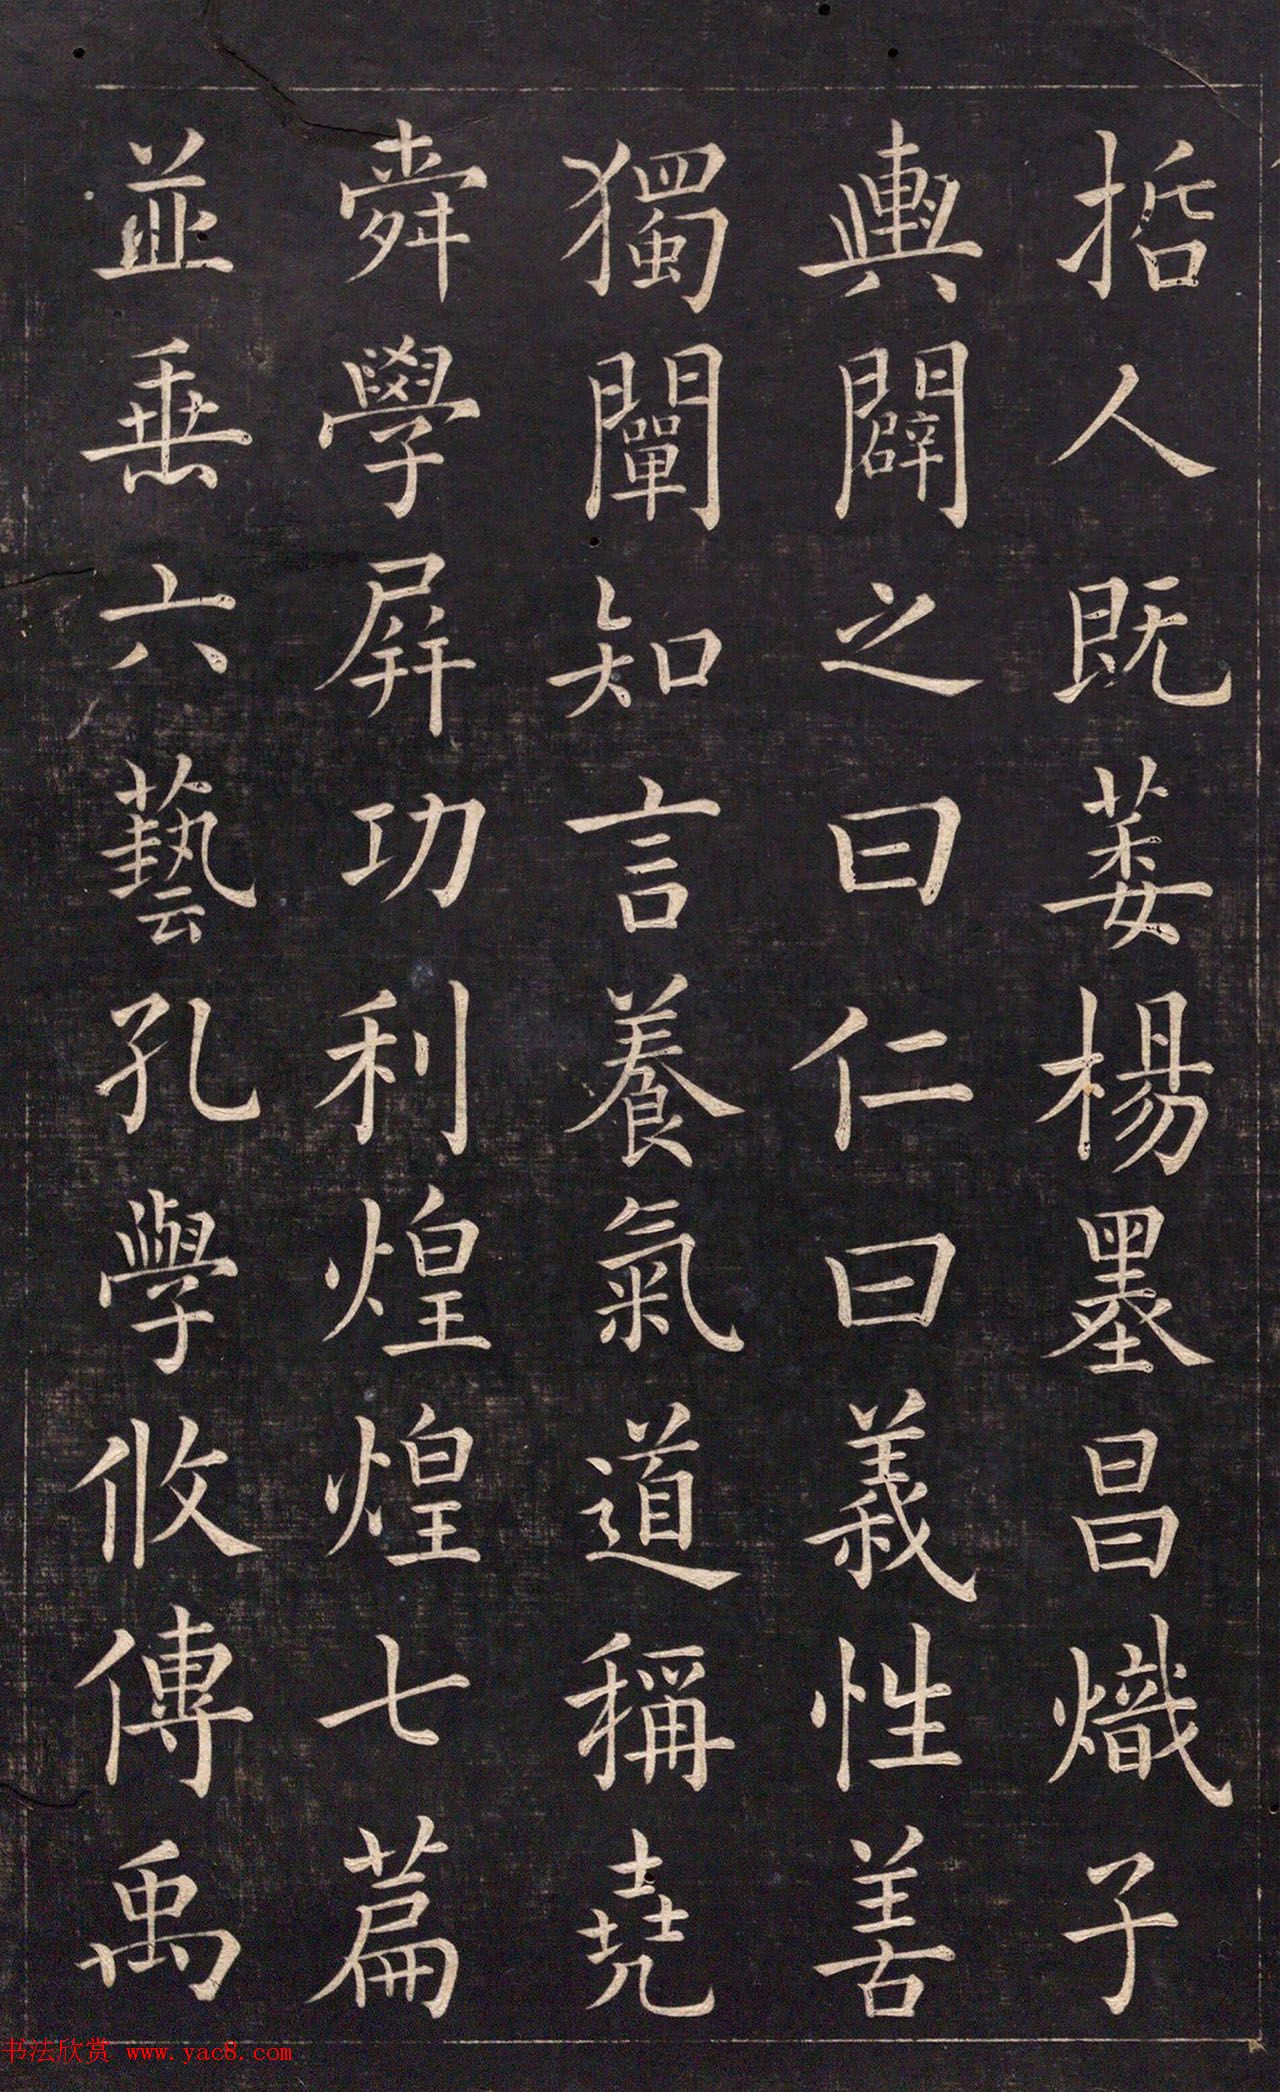 哲人既萎楊墨昌熾子
輿闢之曰仁曰義性善
獨闡知言養氣道稱堯
舜學屏功利煌煌七篇
並垂六藝孔學攸傳禹
书法欣赏 www.yac8.com